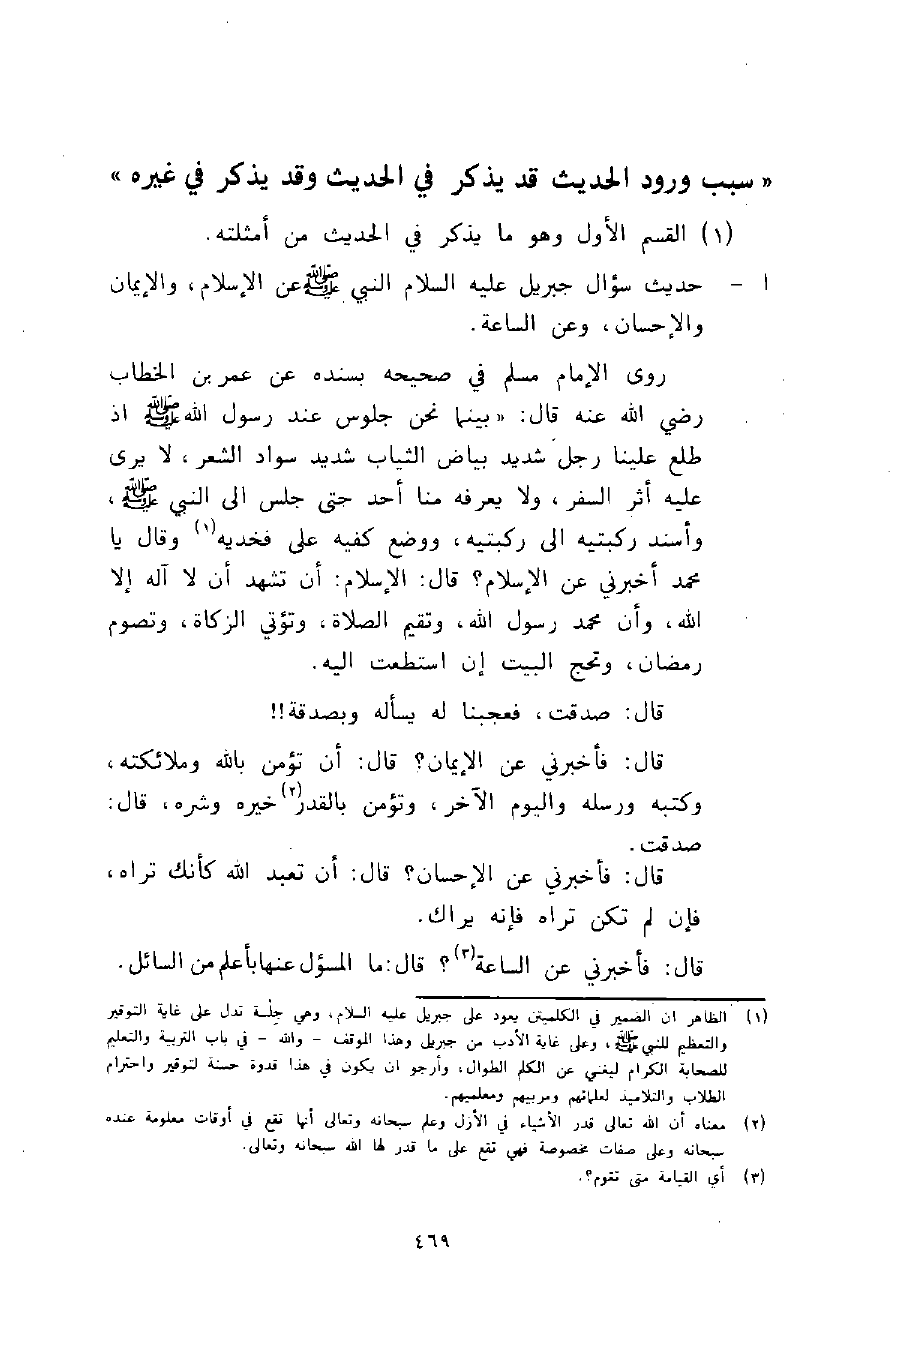 « سبب ورود الحديث قد يذكر في الحديث وقد يذكر في غيره »
(١) القسم الأول وهو ما يذكر في الحديث من أمثلته.
ا - حديث سؤال جبريل عليه السلام النبي ﷺ عن الإسلام، والإيمان
والإحسان، وعن الساعة.
روى الإمام مسلم في صحيحه بسنده عن عمر بن الخطاب
رضي الله عنه قال: « بينما نحن جلوس عند رسول الله ﷺ اذ
طلع علينا رجل شديد بياض الثياب شديد سواد الشعر، لا يرى
عليه أثر السفر، ولا يعرفه منا أحد حتى جلس الى النبي ﷺ،
وأسند ركبتيه الى ركبتيه، ووضع كفيه على فخديه(١) وقال يا
محمد أخبرني عن الإسلام؟ قال: الإسلام: أن تشهد أن لا آله إلا
الله، وأن محمد رسول الله، وتقيم الصلاة، وتؤتي الزكاة، وتصوم
رمضان، وتحج البيت إن استطعت اليه.
قال: صدقت، فعجبنا له يسأله وبصدقة!!
قال: فأخبرني عن الإيمان؟ قال: أن تؤمن بالله وملائكته،
وكتبه ورسله واليوم الآخر، وتؤمن بالقدر(٢) خيره وشره، قال:
صدقت.
قال: فأخبرني عن الإحسان؟ قال: أن تعبد الله كأنك تراه،
فإن لم تكن تراه فإنه يراك.
قال: فأخبرني عن الساعة(٣)؟ قال: ما المسؤل عنها بأعلم من السائل.
(١) الظاهر ان الضمير في الكلمتين يعود على جبريل عليه السلام، وهي جِلْسة تدل على غاية التوقير
والتعظيم للنبي ﷺ، وعلى غاية الأدب من جبريل وهذا الموقف - والله - في باب التربية والتعليم
للصحابة الكرام ليغني عن الكلم الطوال، وأرجو ان يكون في هذا قدوة حسنة لتوقير واحترام
الطلاب والتلاميذ لعلمائهم ومربيهم ومعلميهم.
(٢) معناه أن الله تعالى قدر الأشياء في الأزل وعلم سبحانه وتعالى أنها تقع في أوقات معلومة عنده
سبحانه وعلى صفات مخصوصة فهي تقع على ما قدر لها الله سبحانه وتعالى.
(٣) أي القيامة متى تقوم؟.
٤٦٩